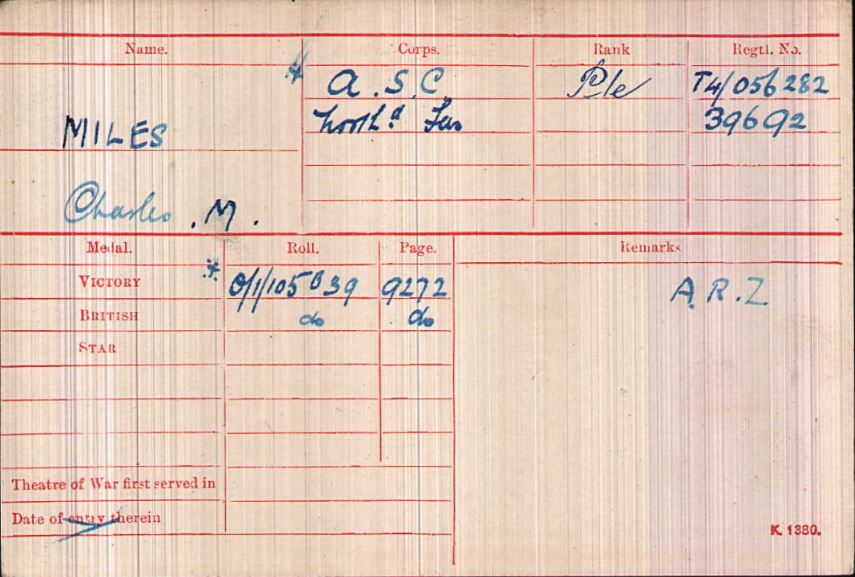 Name. Corps. Rank Regtl. No.
* A.S.C. Pte T4/056282
North'd Fus 39692
MILES
Charles .M.
Medal. Roll. Page. Remarks.
VICTORY * O/1/105 B39 9272 A.R.Z
BRITISH do do
STAR
Theatre of War first served in
Date of entry therein
K. 1380.